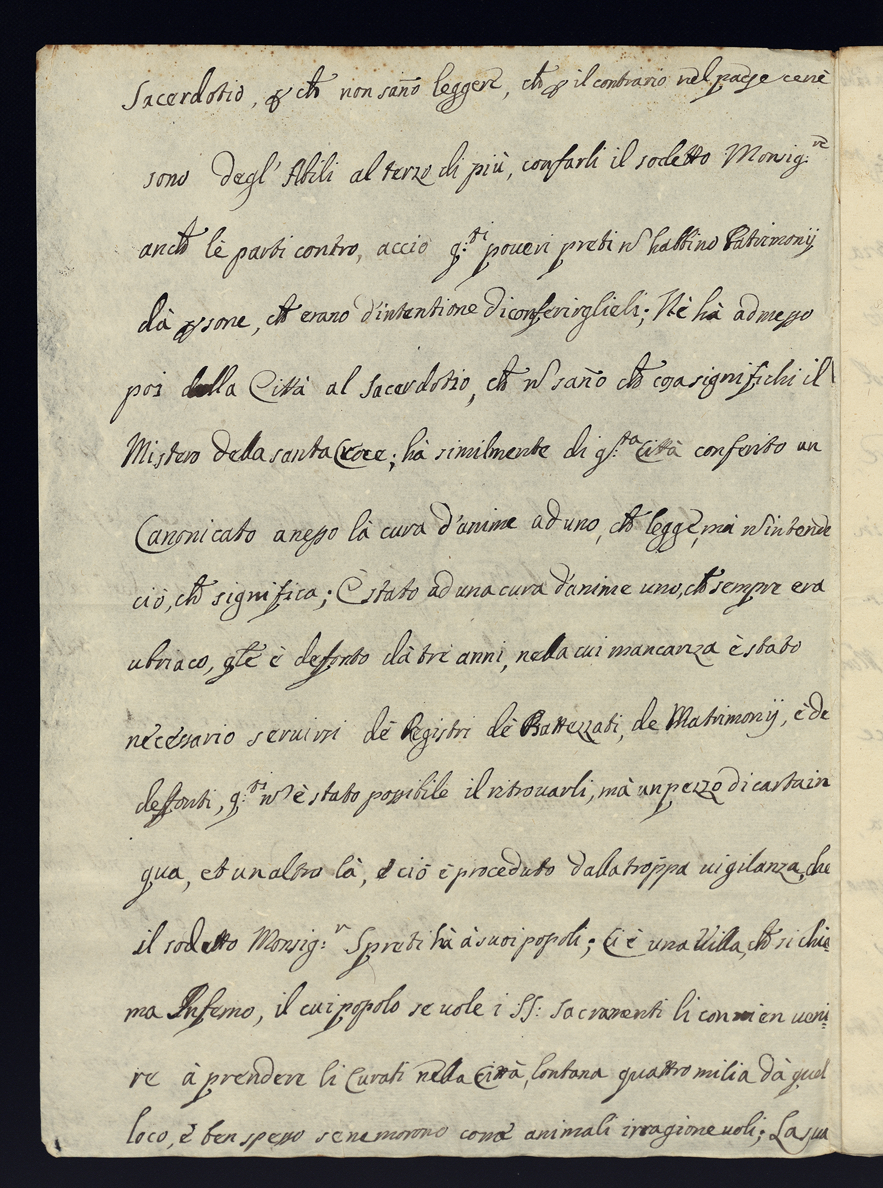 Sacerdotio, ꝑ ch̃ non sano leggere, ch̃ ꝑ il contrario nel paese cenè
sono degl' Abili al terzo di più, confarli il sodetto Monsig:re
anch̃ lè parti contro, acciò q:sti poveri preti ñ habbino Patrimonij
dà ꝑsone, ch̃ erano d'intentione di conferirglieli; Nè hà admesso
poi della Città al Sacerdotio, ch̃ ñ sano ch̃ cosa significhi il
Mistero della santa Croce; hà similmente di q:sta Città conferito un
Canonicato anesso là cura d'anime ad uno, ch̃ legge, mà ñ intende
ciò, ch̃ significa; È stato ad una cura d'anime uno, ch̃ sempre era
ubriaco, qle è defonto dà tre anni, nella cui mancanza è stato
necessario seruirsi dè Registri dè Battezzati, de Matrimonij, è de
deffonti, q:sti ñ è stato possibile il ritrouarli, mà un pezzo di carta in
qua, et un altro là, è ciò è proceduto dalla troppa uigilanza, che
il sodetto Monsig:r Spreti hà à suoi popoli; Ci è una Villa, ch̃ si chia=
ma Inferno, il cui popolo se uole i SS: Sacramenti li conuien ueni=
re à prendere li Curati nella Città, lontana quattro milia dà quel
loco, è ben spesso se ne morono come animali irragioneuoli; La sua